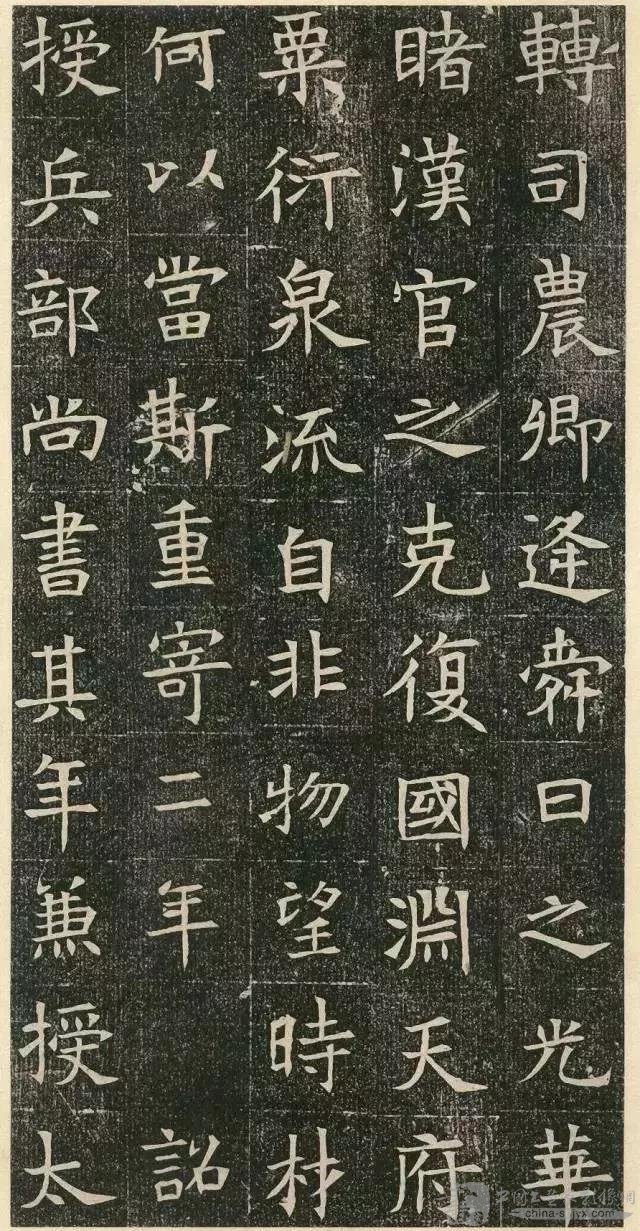 轉司農卿逢舜日之光華
睹漢官之克復國淵天府
粟衍泉流自非物望時材
何以當斯重寄二年詔
授兵部尚書其年兼授太
china-shjyx.com